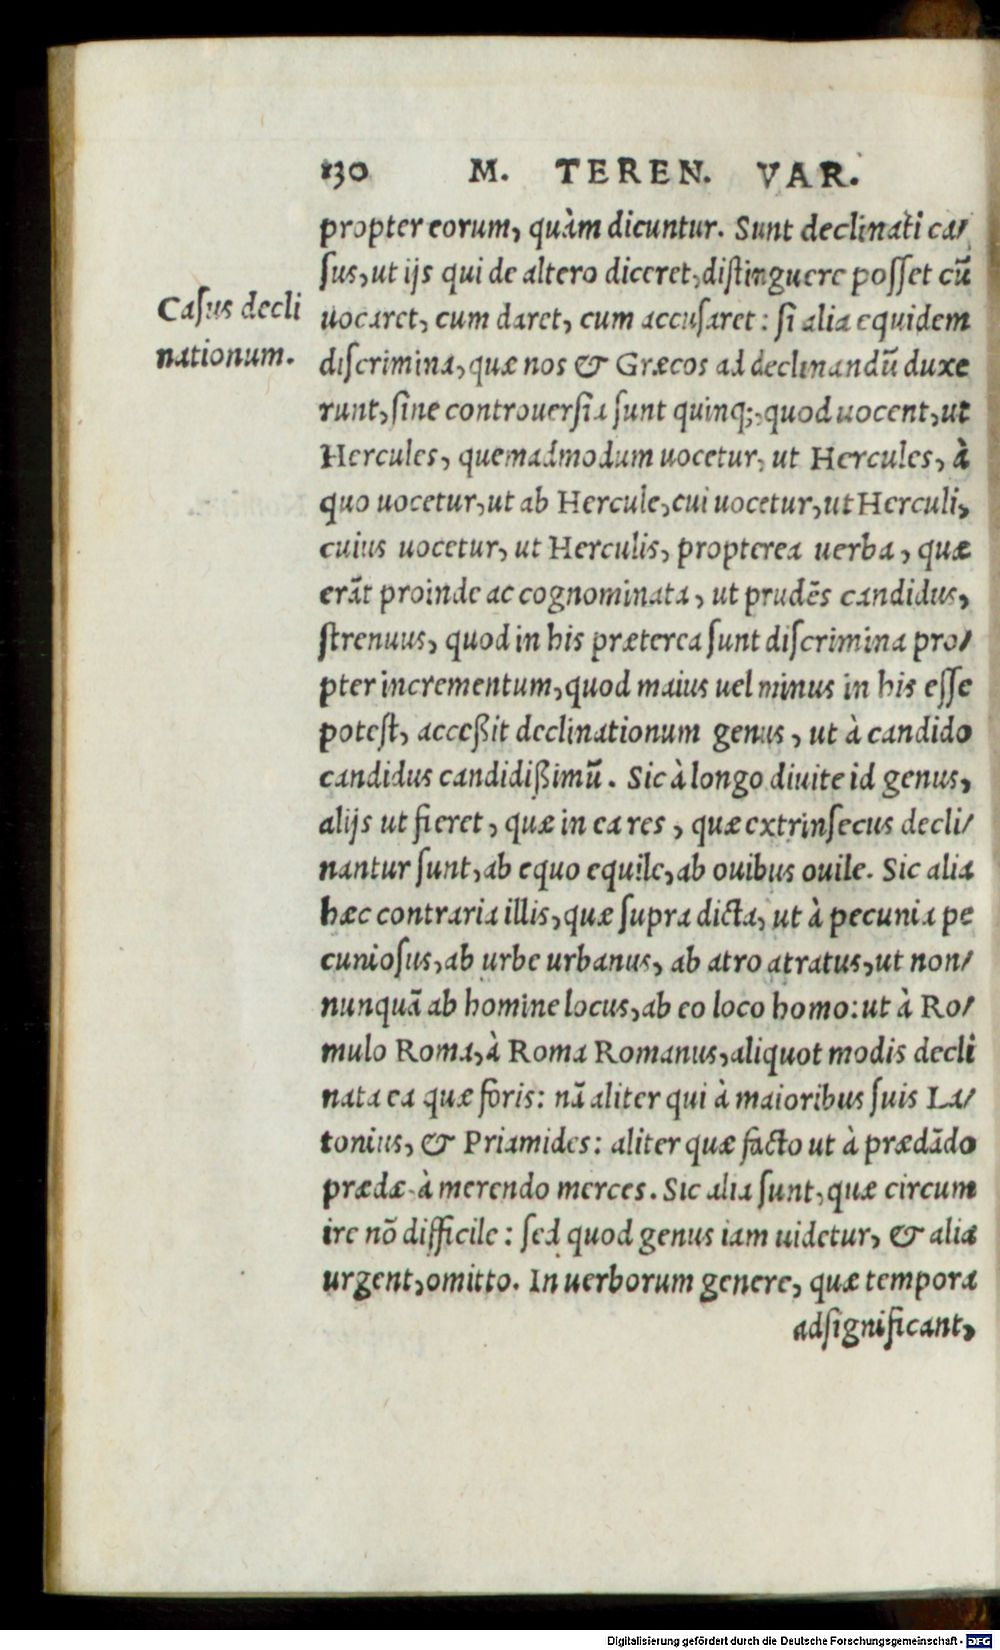 130 M. TEREN. VAR.
propter eorum, quàm dicuntur. Sunt declinati ca/
sus, ut ijs qui de altero diceret, distinguere posset cū
Casus decli
uocaret, cum daret, cum accusaret: si alia equidem
nationum.
discrimina, quæ nos & Græcos ad declinandū duxe
runt, sine controuersia sunt quinq;, quod uocent, ut
Hercules, quemadmodum uocetur, ut Hercules, à
quo uocetur, ut ab Hercule, cui uocetur, ut Herculi,
cuius uocetur, ut Herculis, propterea uerba, quæ
erāt proinde ac cognominata, ut prudēs candidus,
strenuus, quod in his præterea sunt discrimina pro/
pter incrementum, quod maius uel minus in his esse
potest, acceßit declinationum genus, ut à candido
candidus candidißimū. Sic à longo diuite id genus,
alijs ut fieret, quæ in ea res, quæ extrinsecus decli/
nantur sunt, ab equo equile, ab ouibus ouile. Sic alia
hæc contraria illis, quæ supra dicta, ut à pecunia pe
cuniosus, ab urbe urbanus, ab atro atratus, ut non/
nunquā ab homine locus, ab eo loco homo: ut à Ro/
mulo Roma, à Roma Romanus, aliquot modis decli
nata ea quæ foris: nā aliter qui à maioribus suis La/
tonius, & Priamides: aliter quæ facto ut à prædādo
prædæ, à merendo merces. Sic alia sunt, quæ circum
ire nō difficile: sed quod genus iam uidetur, & alia
urgent, omitto. In uerborum genere, quæ tempora
adsignificant,
Digitalisierung gefördert durch die Deutsche Forschungsgemeinschaft - DFG